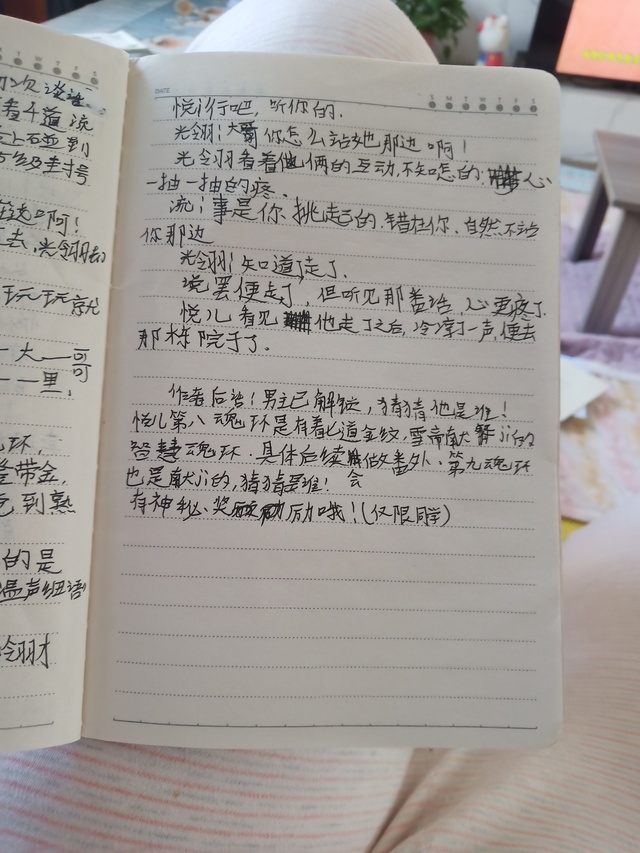 初次
看千道流
上石碰到
万级封号
在这啊！
去，光翎去
玩玩就
一大一哥
一一里，
环，
登带金，
到熟
的是
温声细语
冷翎才
DATE
S M T W T F S
悦：行吧，听你的.
光翎：大哥你怎么站她那边啊！
光翎看着他俩的互动,不知怎的,心
一抽一抽的疼.
流：事是你挑起的.错在你.自然不站
你那边
光翎：知道了走了.
说罢便走了，但听见那番话，心更疼了.
悦儿看见他走了之后，冷哼了一声,便去
那株院子了.
作者后话！男主已解锁，猜猜他是谁！
悦儿第八魂环是有着七道金纹,雪帝献祭的
智慧魂环.具体后续会做番外.第九魂环
也是献祭的,猜猜是谁！
有神秘奖励哦！(仅限同学)